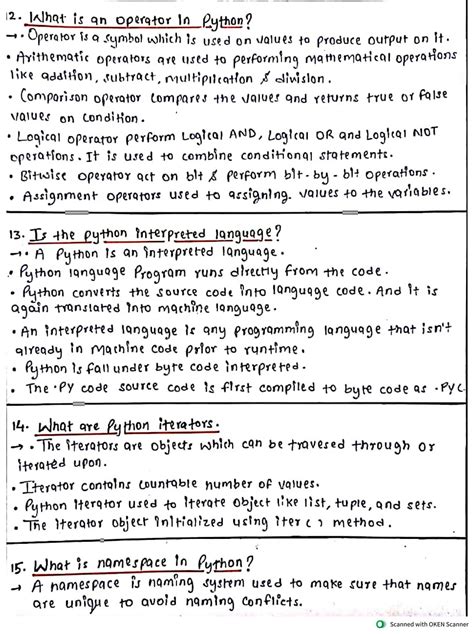 12. What is an operator in Python?
→ • Operator is a symbol which is used on values to produce output on it.
• Arithematic operators are used to performing mathematical operations
like addition, subtract, multiplication & division.
• Comparison operator compares the values and returns true or false
values on condition.
• Logical operator perform Logical AND, Logical OR and Logical NOT
operations. It is used to combine conditional statements.
• Bitwise operator act on bit & perform bit-by-bit operations.
• Assignment operators used to assigning values to the variables.
13. Is the python interpreted language?
→ • A Python is an interpreted language.
• Python language Program runs directly from the code.
• Python converts the source code into language code. And it is
again translated into machine language.
• An interpreted language is any programming language that isn't
already in Machine code prior to runtime.
• Python is fall under byte code interpreted.
• The .py code source code is first compiled to byte code as .pyc
14. What are Python iterators.
→ • The iterators are objects which can be travesed through or
iterated upon.
• Iterator contains countable number of values.
• Python iterator used to iterate object like list, tuple, and sets.
• The iterator object initialized using iter() method.
15. What is namespace in Python?
→ A namespace is naming system used to make sure that names
are unique to avoid naming conflicts.
Scanned with OKEN Scanner